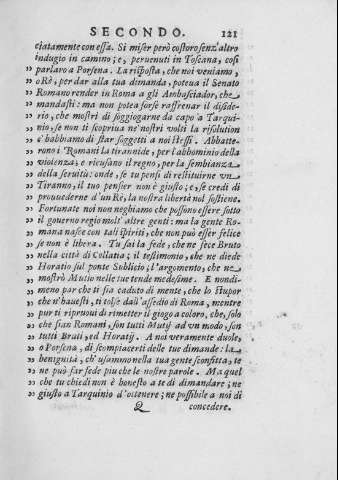 SECONDO. 121
ciatamente con essa. Si miser però costoro senz'altro
indugio in camino; e, peruenuti in Toscana, così
parlaro a Porsena. La risposta, che noi veniamo,
„ ò Rè, per dar alla tua dimanda, poteua il Senato
„ Romano render in Roma a gli Ambasciador, che
„ mandasti: ma non potea forse raffrenar il diside-
„ rio, che mostri di soggiogarne da capo à Tarqui-
„ nio, se non ti scopriua ne' nostri volti la risolution
„ c'habbiamo di star soggetti a noi stessi. Abbatte-
„ rono i Romani la tirannide, per l'abbominio della
„ violenza; e ricusano il regno, per la sembianza
„ della seruitù: onde, se tu pensi di restituirne vn
„ Tiranno, il tuo pensier non è giusto; e, se credi di
„ prouederne d'vn Rè, la nostra libertà nol sostiene.
„ Fortunate noi non neghiamo che possono essere sotto
„ il gouerno regio molt' altre genti: ma la gente Ro-
„ mana nasce con tali spiriti, che non può esser felice
„ se non è libera. Tu sai la fede, che ne fece Bruto
„ nella città di Collatia; il testimonio, che ne diede
„ Horatio sul ponte Sublicio; l'argomento, che ne
„ mostrò Mutio nelle tue tende medesime. E nondi-
„ meno par che ti sia caduto di mente, che lo stupor
„ che n'hauesti, ti tolse dall'assedio di Roma, mentre
„ pur ti ripruoui di rimetter il giogo a coloro, che, solo
„ che sian Romani, son tutti Mutij ad vn modo, son
„ tutti Bruti, ed Horatij. A noi veramente duole,
„ o Porsena, di scompiacerti delle tue dimande: la
„ benignità, ch' vsammo nella tua gente sconfitta, te
„ ne può far fede piu che le nostre parole. Ma quel
„ che tu chiedi non è honesto a te di dimandare; ne
„ giusto a Tarquinio d'ottenere; ne possibile a noi di
Q concedere.